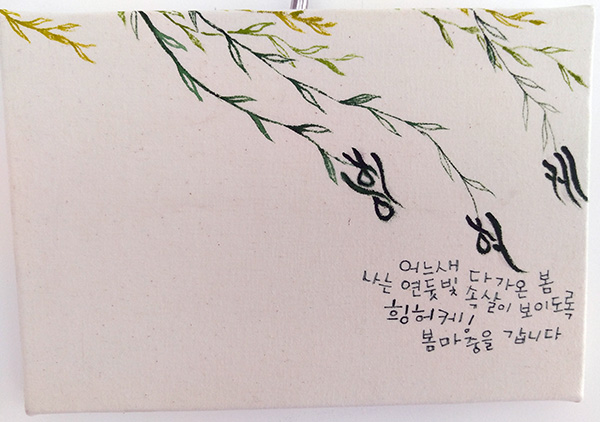 힁
허
케
어느새 다가온 봄
나는 연둣빛 속살이 보이도록
힁허케!
봄마중을 갑니다